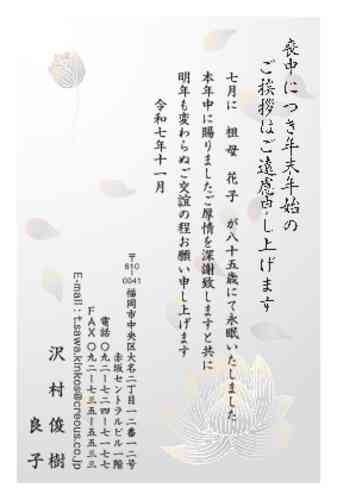 喪中につき年末年始の
ご挨拶はご遠慮申し上げます
七月に 祖母 花子 が八十五歳にて永眠いたしました
本年中に賜りましたご厚情を深謝致しますと共に
明年も変わらぬご交誼の程お願い申し上げます
令和七年十一月
〒810-0041 福岡市中央区大名二丁目一二番一二号
赤坂セントラルビル一階
電話 〇九二ー七二四ー七一七七
FAX 〇九二ー七三五ー五五三三
E-mail：t.sawa.kinkos@creous.co.jp
沢村 俊樹
良子